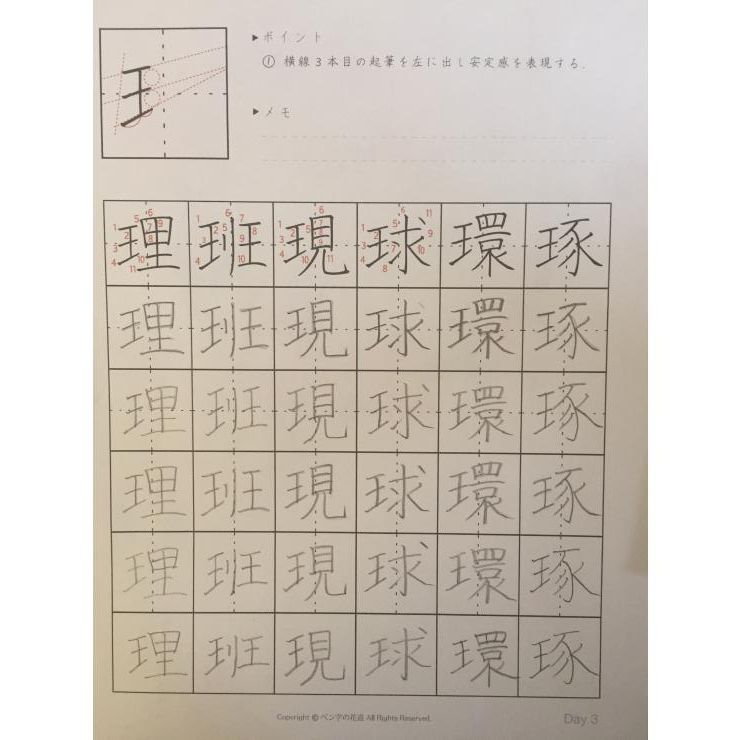 ▶ポイント
① 横線3本目の起筆を左に出し安定感を表現する.
▶メモ
理 班 現 球 環 琢
理 班 現 球 環 琢
理 班 現 球 環 琢
理 班 現 球 環 琢
理 班 現 球 環 琢
理 班 現 球 環 琢
Copyright © ペン字の花道 All Rights Reserved.
Day 3